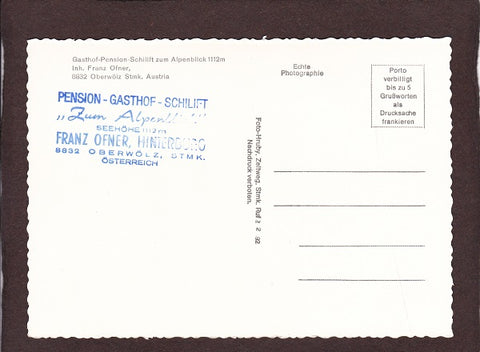 Gasthof-Pension-Schilift zum Alpenblick 1112m
Inh. Franz Ofner,
8832 Oberwölz Stmk. Austria
PENSION - GASTHOF - SCHILIFT
„Zum Alpenblick"
SEEHÖHE 1112m
FRANZ OFNER, HINTERBURG
8832 OBERWÖLZ, STMK.
ÖSTERREICH
Echte
Photographie
Porto
verbilligt
bis zu 5
Grußworten
als
Drucksache
frankieren
Foto-Hruby, Zeltweg, Stmk. Ruf 2 2 92
Nachdruck verboten.